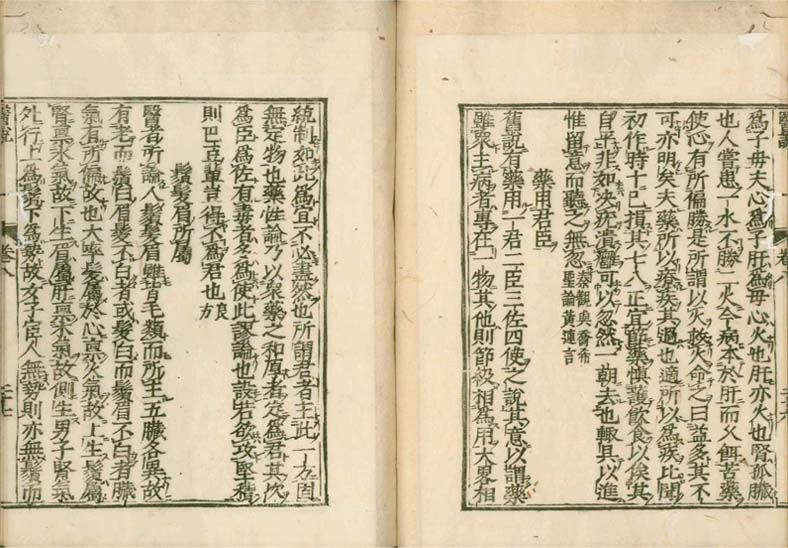 醫說 卷八 二十六
爲子母夫心爲子肝爲母心火也肝亦火也腎孤臓
也人嘗患一水不勝二火今病本於肝而久餌苦藥
使心有所偏勝是所謂以火救火命之曰益多其不
可亦明矣夫藥所以療疾其過也適所以爲疾比聞
初作時十已損其七八正宜節藥慎護飲食以俟其
自平非如決疣潰癰可以忽然一朝去也輙具以進
惟留意而聽之無忽 秦觀與喬希
聖論黄連言
藥用君臣
舊說有藥用一君二臣三佐四使之說其意以謂藥
雖衆主病者專在一物其他則節級相爲用大畧相
統制如此爲宜不必盡然也所謂君者主此一方固
無定物也藥性論乃以衆藥之和厚者定爲君其次
爲臣爲佐有毒者多爲使此謬論也設若欲攻堅積
則巴豆輩豈得不爲君也 良方
鬚髮眉所屬
醫者所論人鬚髮眉雖皆毛類而所主五臓各異故
有老而鬚白眉髮不白者或髮白而鬚眉不白者臓
氣有所偏故也大率髮屬於心禀火氣故上生鬚屬
腎禀水氣故下生眉屬肝禀木氣故側生男子腎氣
外行上爲鬚下爲勢故女子宦人無勢則亦無鬚而
醫說 卷八 二十七